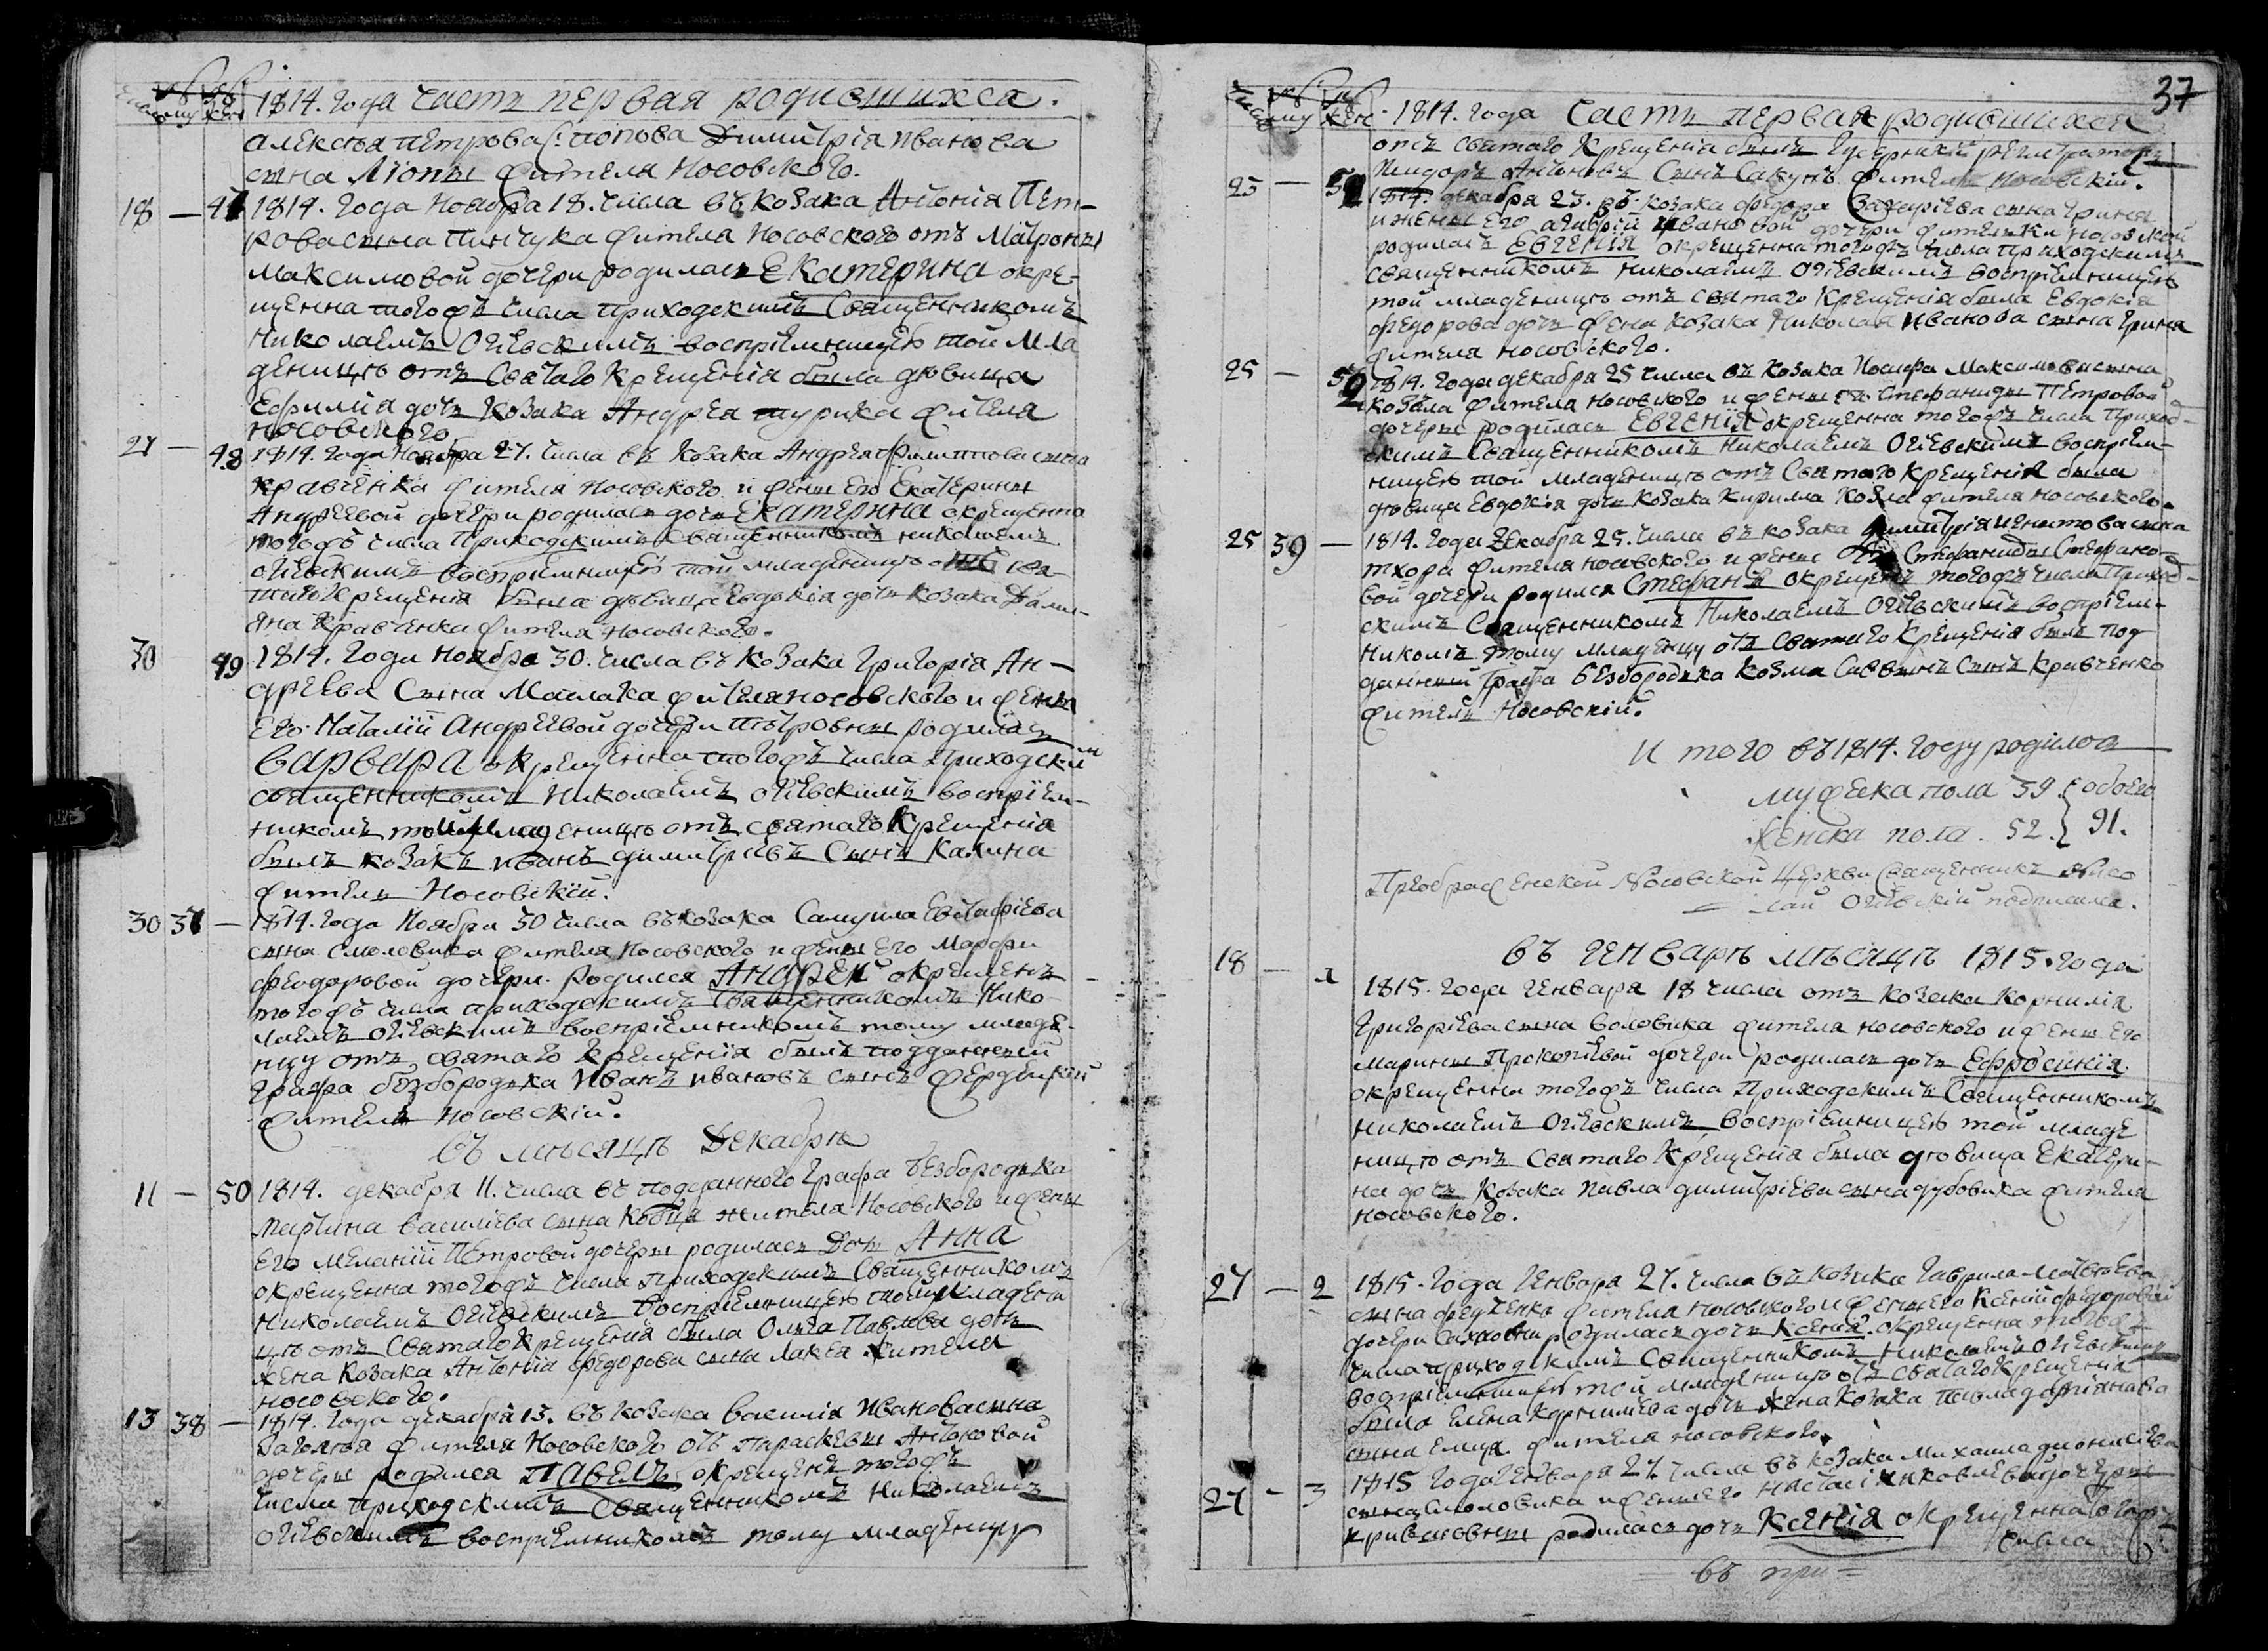 1814. года часть первая родившихся.
Алексѣя Петрова с: Попова Димитрія Иванова
сына Ліопы жителя Носовского.
18 — 47 1814. года Ноября 18. числа въ козака Антонія Пет-
рова сына Пинчука жителя Носовского отъ Матроны
Максимовой дочери родилась Екатерина окре-
щенна тогожъ числа приходскимъ Священникомъ
Николаемъ Огіевскимъ воспріемницею той мла
деницѣ отъ Святаго Крещенія была дѣвица
Ефимія дочь козака Андрея жителя
Носовского
27 — 48 1814. года Ноября 27. числа въ козака Андрея Филиппова сына
Кравченка жителя Носовского и жены его Екатерины
Андреевой дочери родилась дочь Екатерина окрещенна
тогожъ числа Приходскимъ Священникомъ Николаемъ
Огіевскимъ воспріемницею той младеницѣ отъ Свя-
таго Крещенія была дѣвица Евдокія дочь козака Дами-
яна Кравченка жителя Носовского.
30 49 1814. года Ноября 30. числа въ козака Григорія Ан-
дреева Сына Маслака жителя Носовского и жены
его Наталіи Андреевой дочери Петровны родилась
Варвара окрещенна тогожъ числа Приходским
священникомъ Николаемъ Огіевскимъ воспріем-
никомъ той младеницѣ отъ святаго Крещенія
былъ козакъ Иванъ Димитріевъ Сынъ Калина
житель Носовскій.
30 37 — 1814. года Ноября 30 числа въ козака Самуила Евстафіева
сына Смоловика жителя Носовского и жены его Марфы
Феодоровой дочери. родился Андрей окрещенъ
тогожъ числа приходскимъ Священникомъ Нико
лаемъ Огіевскимъ воспріемникомъ тому младе-
нцу отъ святаго Крещенія былъ подданный
Графа Безбородька Иванъ Ивановъ сынъ
житель Носовскій.
въ мѣсяцѣ Декабрѣ
11 — 50 1814. декабря 11. числа въ подданного Графа Безбородька
Мартина Василіева сына жителя Носовского и жены
его Меланіи Петровой дочеры родилась Дочь Анна
окрещенна тогожъ числа Приходскимъ Священникомъ
Николаемъ Огіевскимъ Воспріемницею той младени
цѣ отъ Святаго Крещенія была Олга Павлова дочь
жена козака Антонія Федорова сына жителя
Носовского.
13 38 — 1814. года декабря 13. въ козака Василія Иванова сына
жителя Носовского отъ Параскевы Антоновой
дочеры родился Павелъ окрещенъ тогожъ
числа приходскимъ Священникомъ Николаемъ
Огіевскимъ воспріемникомъ тому младенцу
37
1814. года Часть первая родившихся
отъ святаго Крещенія былъ Губернскій регистраторъ
Исидоръ Антоновъ Сынъ Сакунъ житель Носовскій.
23 — 51 1814. декабря 23. въ козака Федора Захаріева сына Гриня
и жены его Ивановой дочери жителки Носовской
родилась Евгенія окрещенна тогожъ числа приходскимъ
Священникомъ Николаемъ Огіевскимъ воспріемницею
той младеницѣ отъ святаго Крещенія была Евдокія
Федорова дочь жена козака Николая Иванова сына Гриня
жителя Носовского.
25 — 52 1814. года декабря 25 числа въ козака Иосифа Максимова сына
Козела жителя Носовского и жены его Стефаниды Петровой
дочеры родилась Евгенія окрещенна тогожъ числа Приход-
скимъ Священникомъ Николаемъ Огіевскимъ воспріем-
ницею той младеницѣ отъ Святаго Крещенія была
дѣвица Евдокія дочь козака Кирила Козла жителя Носовского.
25 39 — 1814. года Декабря 25. числа въ козака Димитрія сына
Тхора жителя Носовского и жены его Стефаниды Стефано-
вой дочери родился Стефанъ окрещенъ тогожъ числа Приход-
скимъ Священникомъ Николаемъ Огіевскимъ воспріем-
никомъ тому младенцу отъ Святаго Крещенія былъ под
данный Графа Безбородька Козма Саввинъ Сынъ Кравченко
житель Носовскій.
И того въ 1814. году родилось
мужеска пола 39. { обоего
женска пола. 52. } 91.
Преображенской Носовской Церкви Священникъ Нико
лай Огіевскій подписался.
въ Генварѣ мѣсяцѣ 1815. года
18 — 1 1815. года Генваря 18 числа отъ козака Корнилія
Григоріева сына Воловика жителя Носовского и жены его
Марины Прокопіевой дочери родилась дочь Ефросинія
окрещенна тогожъ числа Приходскимъ Священникомъ
Николаемъ Огіевскимъ Воспріемницею той младе
ницѣ отъ Святаго Крещенія была дѣвица Екатери-
на дочь козака Павла Димитріева сына Дубовика жителя
Носовского.
27 — 2 1815. года Генваря 27. числа въ козака Гаврила Матвѣева
сына Федченка жителя Носовского и жены его Ксеніи Федоровой
дочери родилась дочь Ксенія. окрещенна тогожъ
числа приходскимъ Священникомъ Николаемъ Огіевским
воспріемницею той младеницѣ отъ Святаго Крещенія
была Елена Корнилиева дочь жена козака Павла
сына жителя Носовского.
27 - 3 1815 года Генваря 27. числа въ козака Михаила Дионисіева
сына Смоловика и жены его Настасіи Яковлевой дочери
родилась дочь Ксенія окрещенна тогожъ
числа
= въ при =